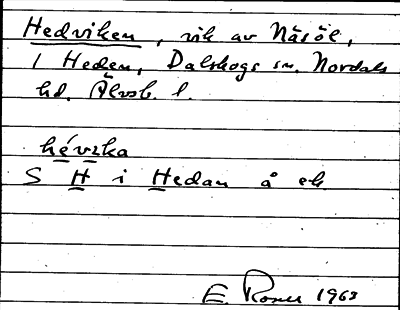 Hedviken, vik av Näsöl,
i Heden, Dalskogs sn. Nordals
hd. Älvsb. l.
hévzka
S H i Hedan å ek
E. Rosell 1963